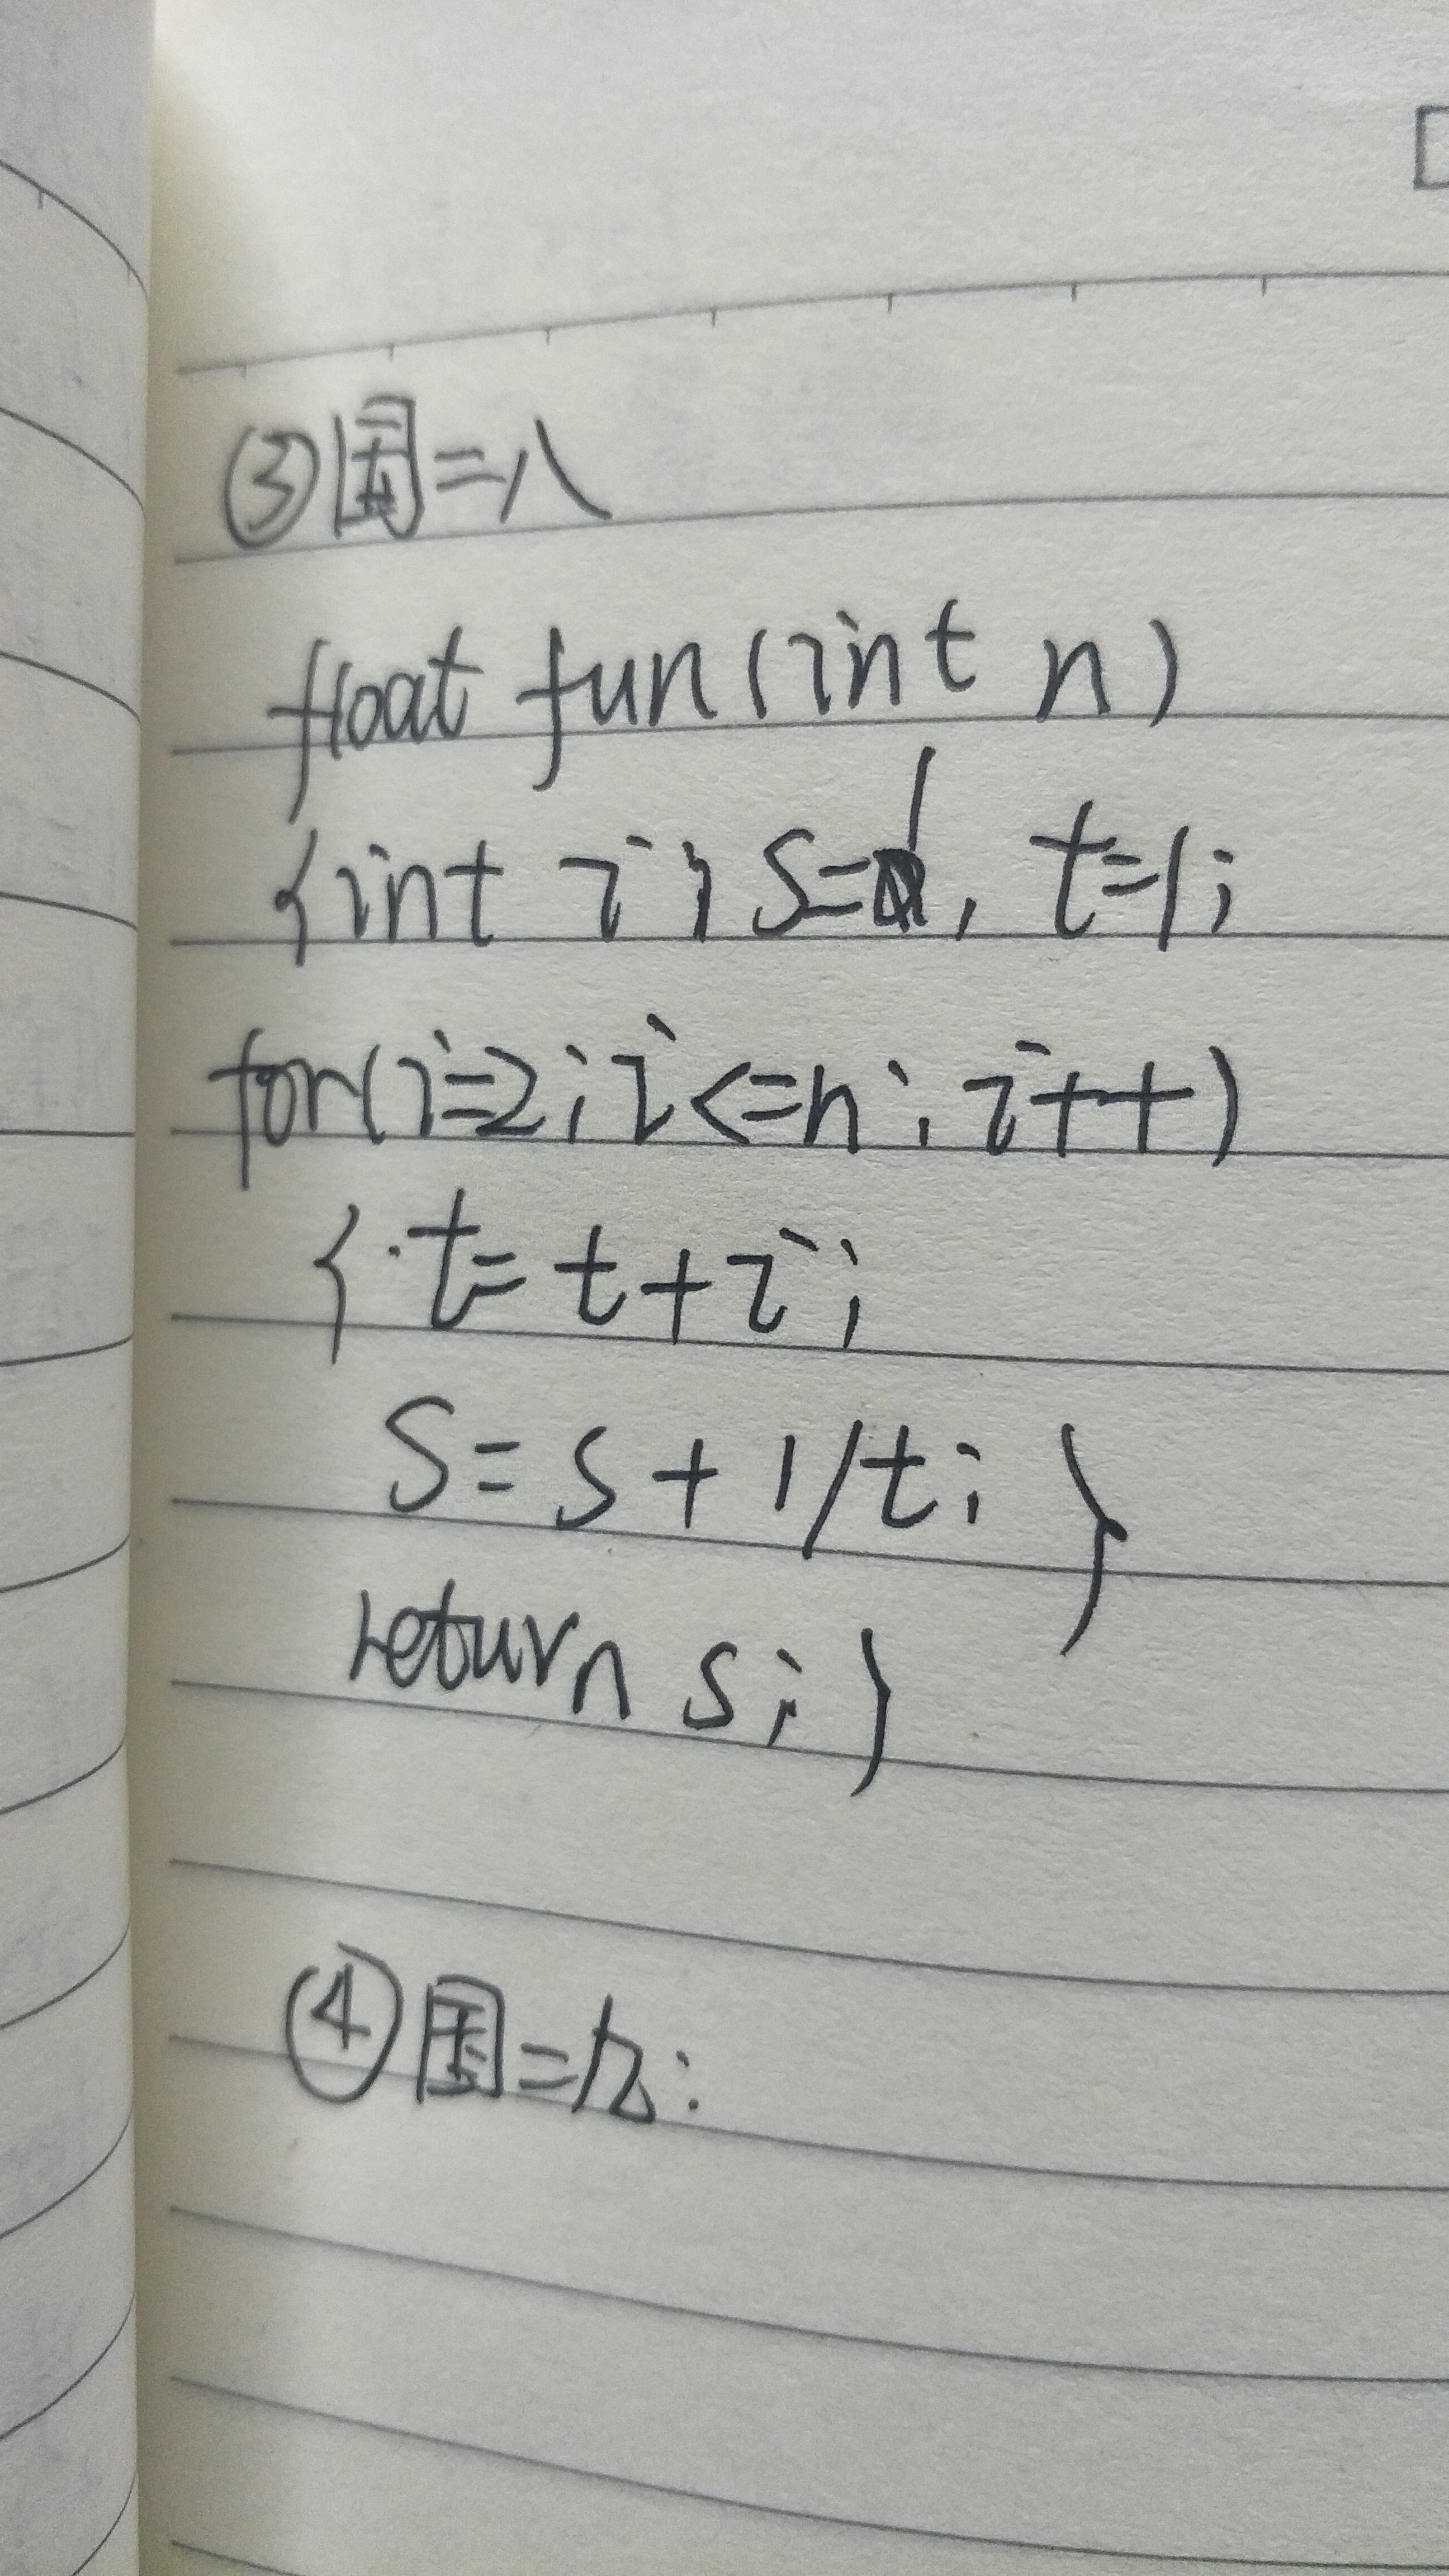 ③国=八
float fun(int n)
{int i, s=1, t=1;
for(i=2;i<=n;i++)
{t=t+i;
s=s+1/t;}
return s;}
④国=九: